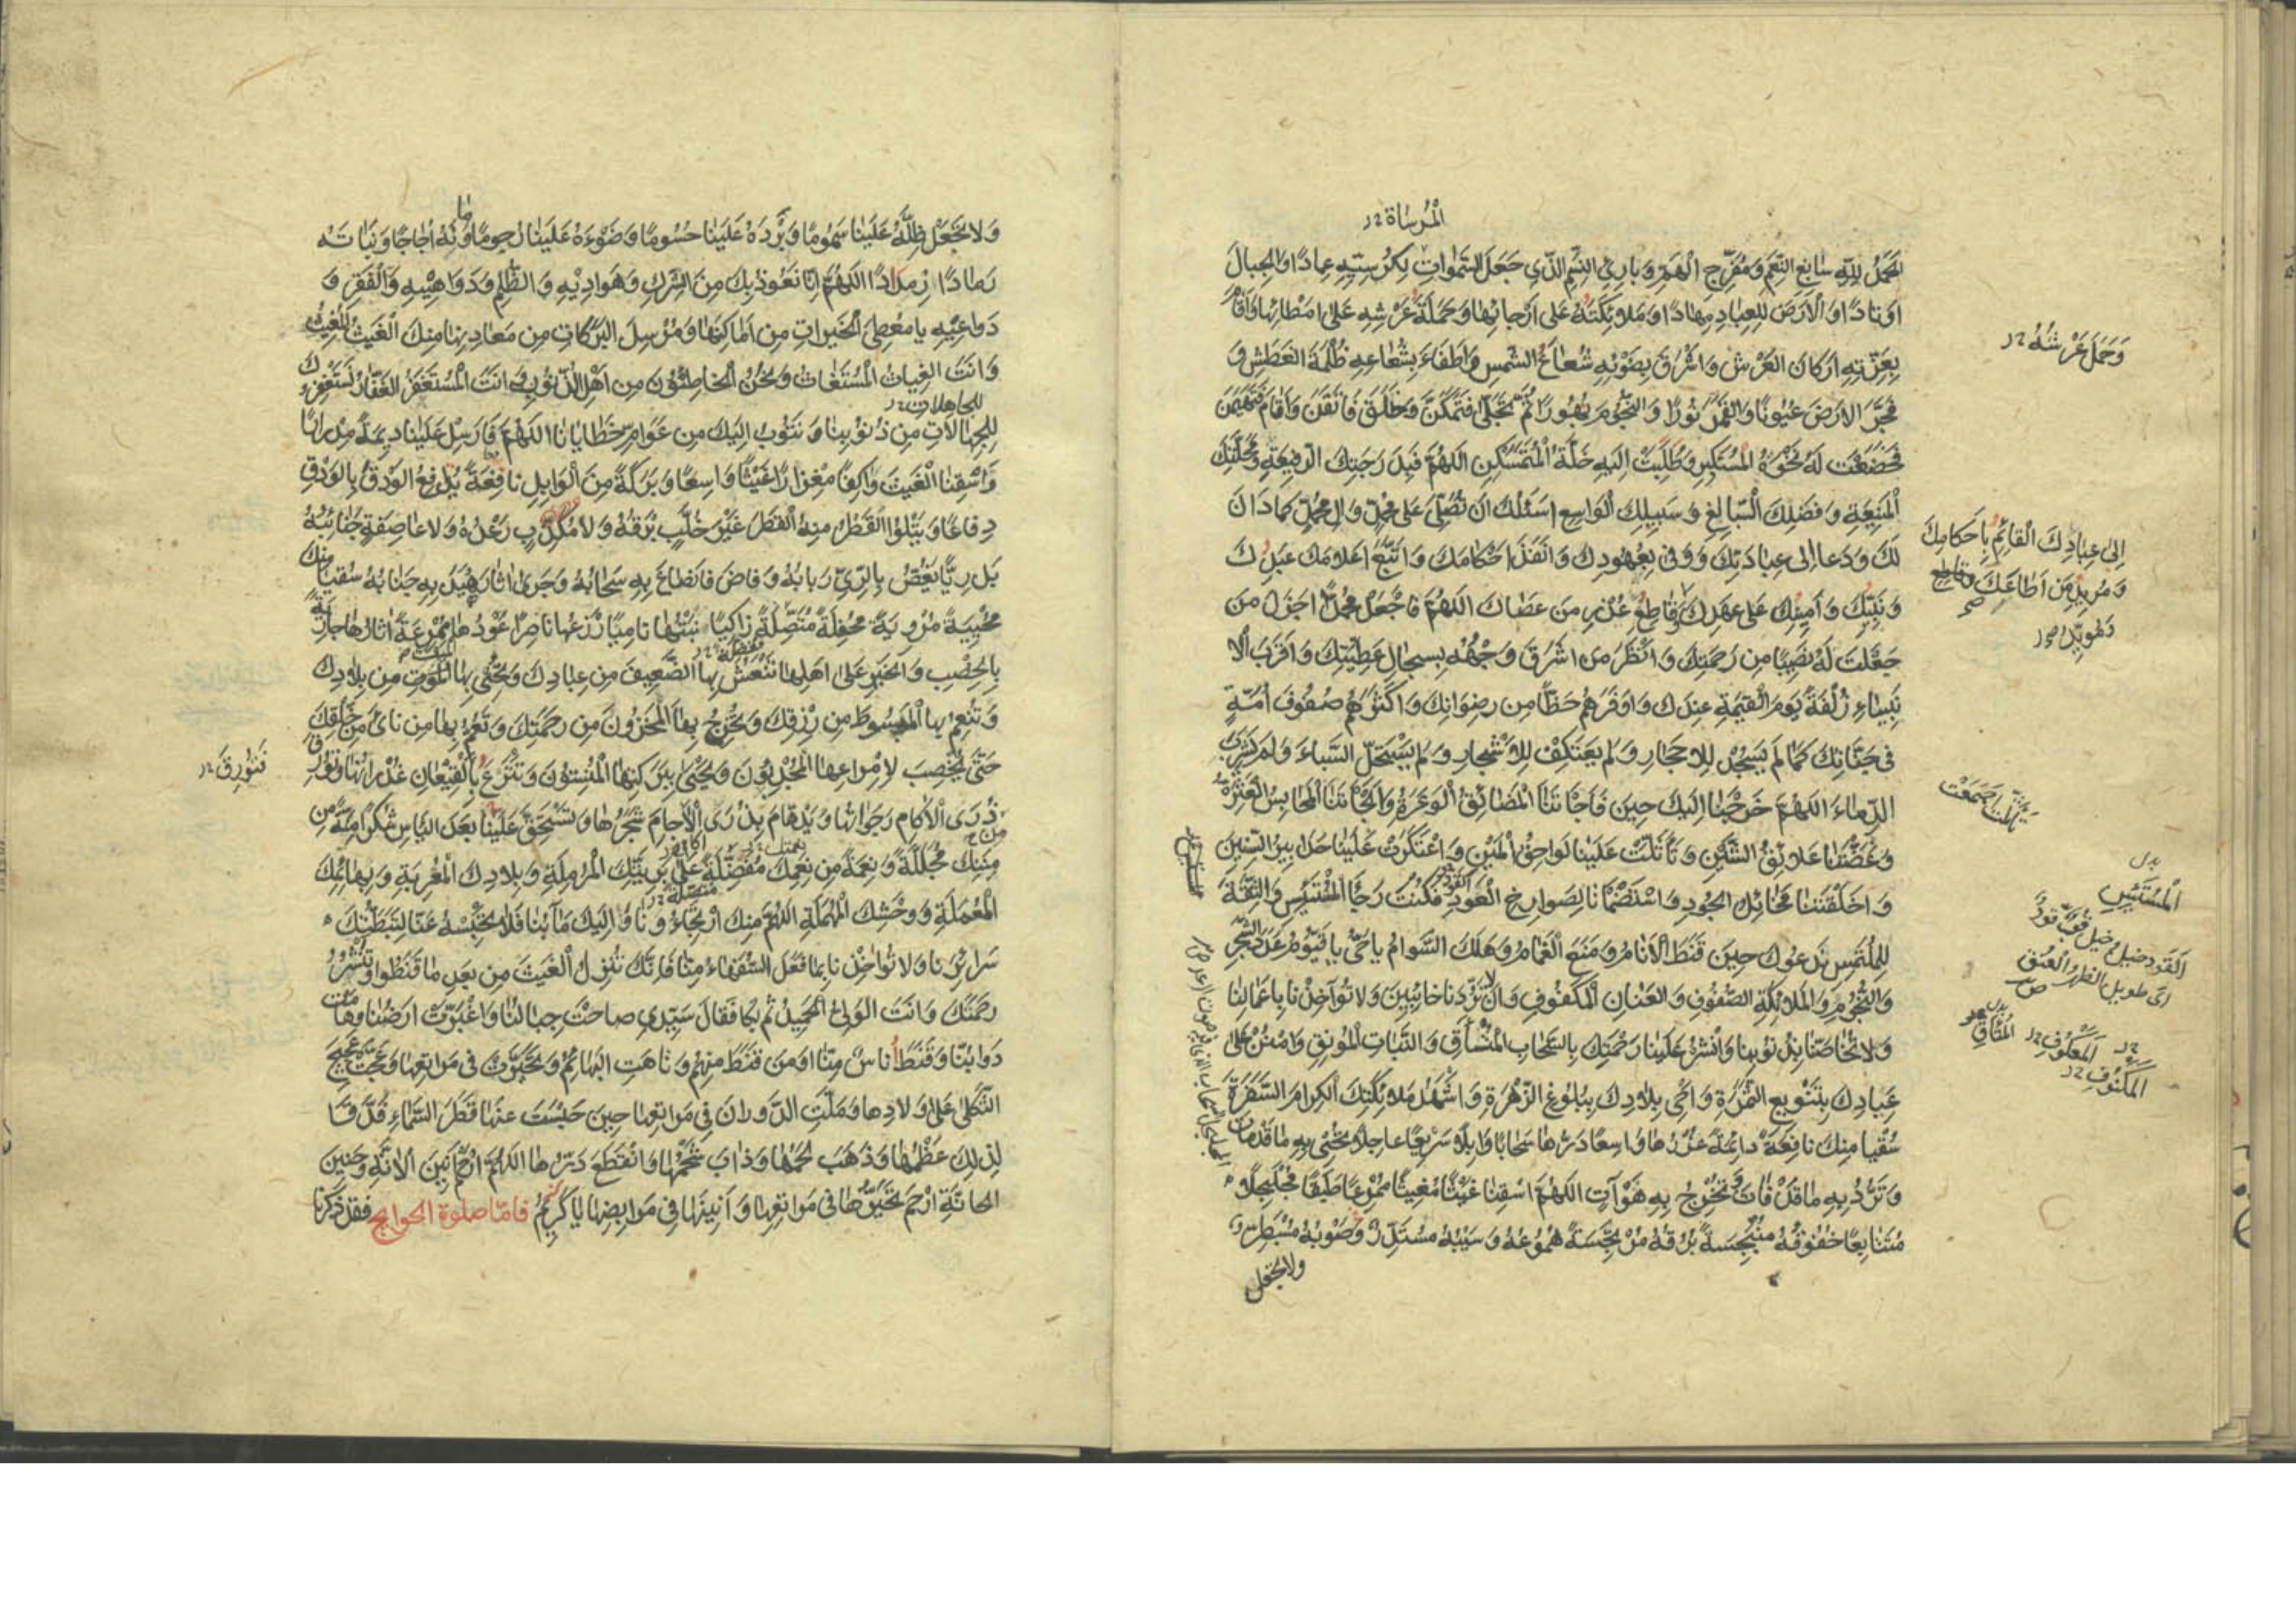 المرساة
الحمد لله سابغ النعم ومفرج الهم وبارئ النسم الذي جعل السموات لكرسيه عمادا والجبال
اوتادا والارض للعباد مهادا وملائكته على ارجائها وحملة عرشه على امطائها واقام
بعزته اركان العرش واشرق بضوئه شعاع الشمس واطفاء بشعاعه ظلمة الغطش و
فجر الارض عيونا والقمر نورا والنجوم بهورا ثم تجلى فتمكن وخلق فاتقن واقام فتهيمن
فخضعت له نخوة المستكبر وطلبت اليه خلة المتمسكن اللهم فبدرجتك الرفيعة ومحلتك
المنيعة وفضلك السابغ وسبيلك الواسع اسئلك ان تصلي على محمد وال محمد كما دان
لك ودعا الى عبادتك ووفى بعهودك وانفذ احكامك واتبع اعلامك عبدك
ونبيك وامينك على عهدك وقاطع عذر من عصاك اللهم فاجعل محمدا اجزل من
جعلت له نصيبا من رحمتك وانضر من اشرق وجهه بسجال عطيتك واقرب الا
نبياء زلفة يوم القيمة عندك واوفرهم حظا من رضوانك واكثرهم صفوف امة
في جناتك كما لم يسجد للاحجار ولم يعتكف للاشجار ولم يستحل السباء ولم يشرب
الدماء اللهم خرجنا اليك حين فاجاتنا المضائق الوعرة والجاتنا المحابس العسرة
وعضتنا علائق الشين وتاثلت علينا لواحق المين واعتكرت علينا حدابير السنين
واخلفتنا مخائل الجود واستظمأنا لصوارخ العود فكنت رجأ المبتئس والثقة
للملتمس ندعوك حين قنط الانام ومنع الغمام وهلك السوام يا حي يا قيوم عدد الشجر
والنجوم والملائكة الصفوف والعنان المكفوف وان لا تردنا خائبين ولا تؤاخذنا باعمالنا
ولا تخاصنا بذنوبنا وانشر علينا رحمتك بالسحاب المنساق والنبات المونق وامنن على
عبادك بتنويع الثمرة واحي بلادك ببلوغ الزهرة واشهد ملائكتك الكرام السفرة
سقيا منك نافعة دائمة غزرها واسعا درها سحابا وابلا سريعا عاجلا تحيي به ما قد مات
وترد به ما قد فات وتخرج به ما هو آت اللهم اسقنا غيثا مغيثا ممرعا طبقا مجلجلا
متتابعا خفوقه منبجسة بروقه مرتجسة هموعه وسيبه مستدر وصوبه مسبطر
ولا تجعل
وحمل عرشه
الى عبادك القائم باحكامك
ومريد من اطاعك وقاطع
بدل
المستئس
القود خيل وخيل قب قود
اي طويل الظهر والعنق
المعكوف
المكنوف
ولا تجعل ظله علينا سموما وبرده علينا حسوما وضوءه علينا رجوما وماءه اجاجا ونباته
رمادا رمددا اللهم انا نعوذ بك من الشرك وهواديه والظلم ودواهيه والفقر و
دواعيه يا معطي الخيرات من اماكنها ومرسل البركات من معادنها منك الغيث المغيث
وانت الغياث المستغاث ونحن الخاطئون من اهل الذنوب وانت المستغفر الغفار نستغفرك
للجاهلات
للجهالات من ذنوبنا ونتوب اليك من عوام خطايانا اللهم فارسل علينا ديمة مدرارا
واسقنا الغيث واكفا مغزارا غيثا واسعا وبركة من الوابل نافعة يدافع الودق بالودق
دفاعا ويتلوا القطر منه القطر غير خلب برقه ولا مكذب رعده ولا عاصفة جنائبه
بل ريا يغص بالري ربابه وفاض فانصاع به سحابه وجرى اثار هيدبه جنابه سقيا منك
محيية مروية محفلة متصلة زاكيا نبتها ناميا زرعها ناضرا عودها ممرعة اثارها جارية
بالخصب والخير على اهلها تنعش بها الضعيف من عبادك وتحيي بها الموت من بلادك
وتنعم بها المبسوط من رزقك وتخرج بها المخزون من رحمتك وتعم بها من نائ من خلقك
حتى يخصب لامراعها المجدبون ويحيى ببركتها المسنتون وتترع بالقيعان غدرانها وتورق
فتورق
ذرى الاكام رجواتها ويدهام بذرى الآجام شجرها وتستحق علينا بعد الياس شكرا منة من
مننك مجللة ونعمة من نعمك مفضلة على بريتك المرملة وبلادك المغربة وبهائمك
المعملة ووحشك المهملة اللهم منك ارتجاءونا واليك مآبنا فلا تحبسه عنا لتبطنك
سرائرنا ولا تؤاخذنا بما فعل السفهاء منا فانك تنزل الغيث من بعد ما قنطوا وتنشر
رحمتك وانت الولي الحميد ثم بكا فقال سيدي صاحت جبالنا واغبرت ارضنا وهامت
دوابنا وقنط اناس منا او من قنط منهم وتاهت البهائم وتحيرت في مراتعها وعجت عجيج
الثكلى على اولادها وملت الدوران في مراتعها حين حبست عنها قطر السماء فدق
لذلك عظمها وذهب لحمها وذاب شحمها وانقطع درها اللهم ارحم انين الآنة وحنين
الحانة ارحم تحيرها في مراتعها وانينها في مرابضها يا كريم فاما صلوة الحوايج فقد ذكرنا